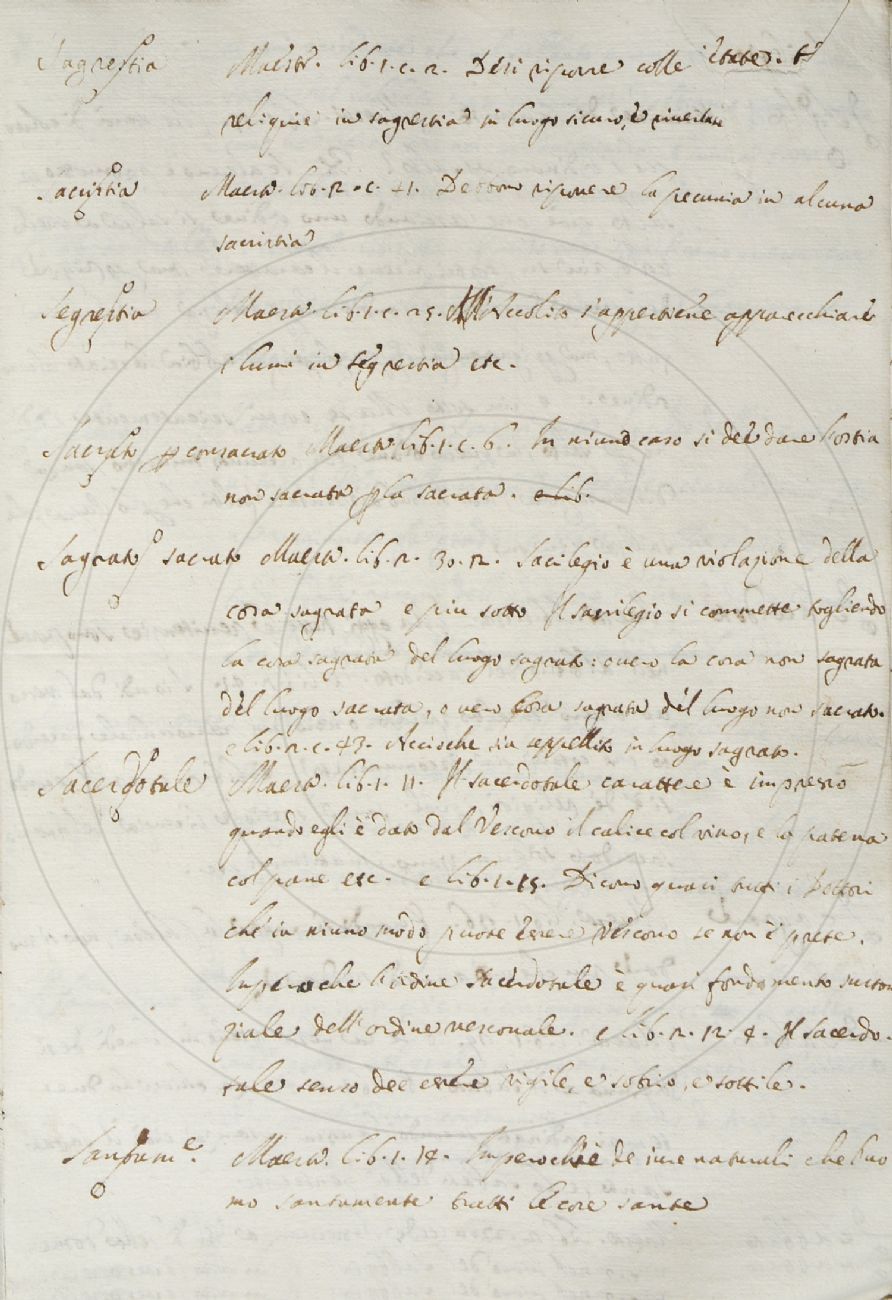 Sagrestia Maestr. lib. 1. c. 2. Desi riporre colle
reliquie in sagrestia in luogo sicuro, e
Sacristia Maestr. lib. 2. c. 41. Debbono riponere la pecunia in alcuna
sacristia
Segrestia Maestr. lib. 1. c. 25. All'Accolito s'appertiene apparecchiare
i lumi in segrestia etc.
Sacrato p consacrato Maestr. lib. 1. c. 6. In niuno caso si deè dare l'ostia
non sacrata p la sacrata. e lib.
Sagrato, sacrato Maestr. lib. 2. 30. 12. Sacilegio è una violazione della
cosa sagrata e piu sotto Il sacrilegio si commette togliendo
la cosa sagrata del luogo sagrato: overo la cosa non sagrata
del luogo sacrata, o vero Cosa sagrata del luogo non sacrato.
e lib. 2. c. 43. Accioche sia seppellito in luogo sagrato.
Sacerdotale Maestr. lib. 1. 11. Il sacerdotale carattere è impresso
quando egli è dato dal Vescovo il calice col vino, e la patena
col pane etc. e lib. 1. 15. Dicono quasi tutti i Dottori
che in niuno modo puote essere Vescovo se non è prete.
Imperoche l'ordine Sacerdotale è quasi fondamento sustan
ziale dell'ordine vescovale. e lib. 2. 12. 4. Il Sacerdo-
tale senso dee essere vigile, e sobrio, e sottile.
Santam.e Maestr. lib. 1. 14. Imperochè de iure naturali che l'uo
mo santamente tratti le cose sante